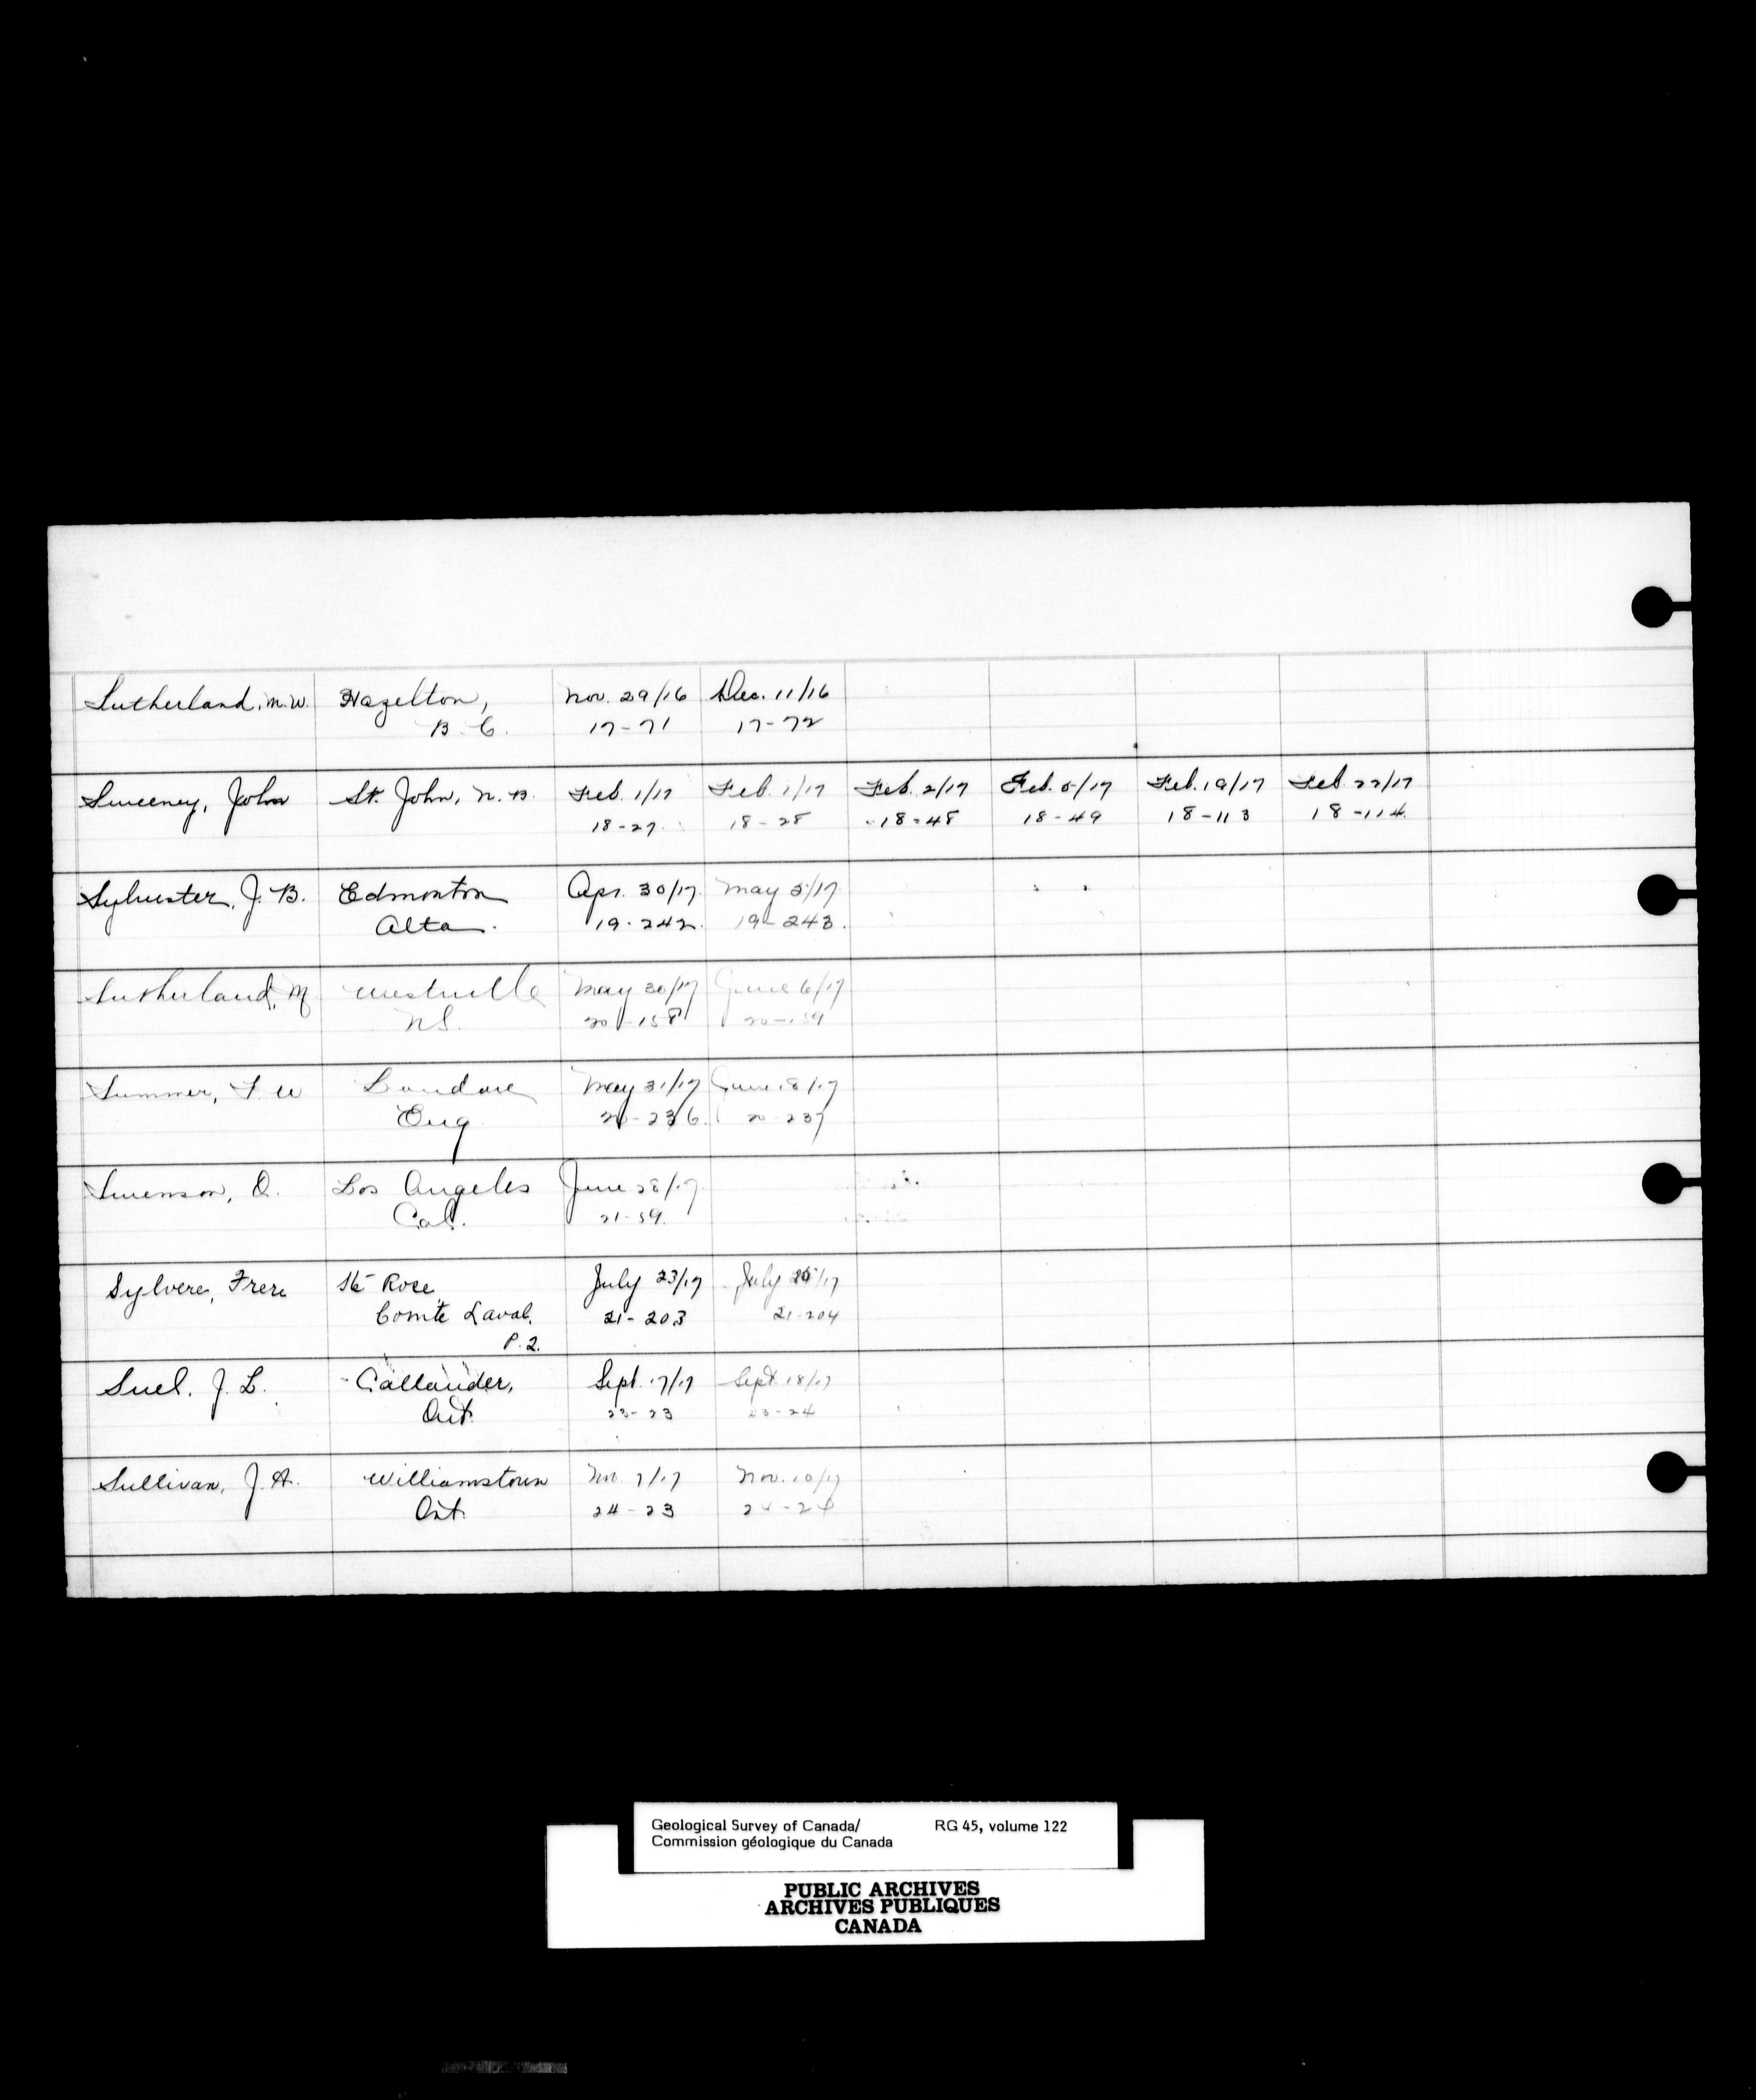 Sutherland, M.W. Hazelton, Nov. 29/16 Dec. 11/16
B.C. 17-71 17-72
Sweeney, John St. John, N.B. Feb. 1/17 Feb. 1/17 Feb. 2/17 Feb. 5/17 Feb. 19/17 Feb. 22/17
18-27 18-28 18-48 18-49 18-113 18-114
Sylvester, J.B. Edmonton Apr. 30/17 May 5/17
Alta. 19-242 19-243
Sutherland, M Westville May 30/17 June 6/17
N.S. 20-158 20-159
Summer, F W London May 31/17 June 18/17
Eng 20-236 20-237
Swenson, O. Los Angeles June 28/17
Cal. 21-59
Sylvere, Frere Ste Rose July 23/17 July /17
Comte Laval, 21-203 21-204
P.Q.
Suel, J. L. Callander, Sept. 17/17 Sept. 18/17
Ont. 23-23 23-24
Sullivan, J.A. Williamstown Nov. 7/17 Nov. 10/17
Ont. 24-23 24-24
Geological Survey of Canada/ RG 45, volume 122
Commission géologique du Canada
PUBLIC ARCHIVES
ARCHIVES PUBLIQUES
CANADA